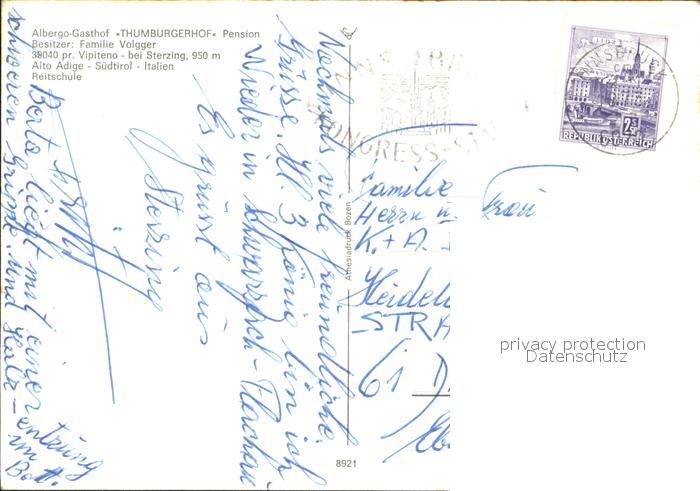 Albergo-Gasthof »THUMBURGERHOF« Pension
Besitzer: Familie Volgger
39040 pr. Vipiteno - bei Sterzing, 950 m
Alto Adige - Südtirol - Italien
Reitschule
Nochmals viele freundliche
Grüsse. Hl. 3 König bin ich
Wieder in Schwarzach-
Es grüsst aus
Sterzing
Berta liegt mit einer
schweren Grippe und Hals-entzung
im Bett.
Athesiadruck Bozen
8921
INNSBRUCK
KONGRESS-ST
INNSBRUCK
2.50
REPUBLIK ÖSTERREICH
Familie
Herrn u. Frau
K. + A.
Heidel
STRA
61 D
privacy protection
Datenschutz